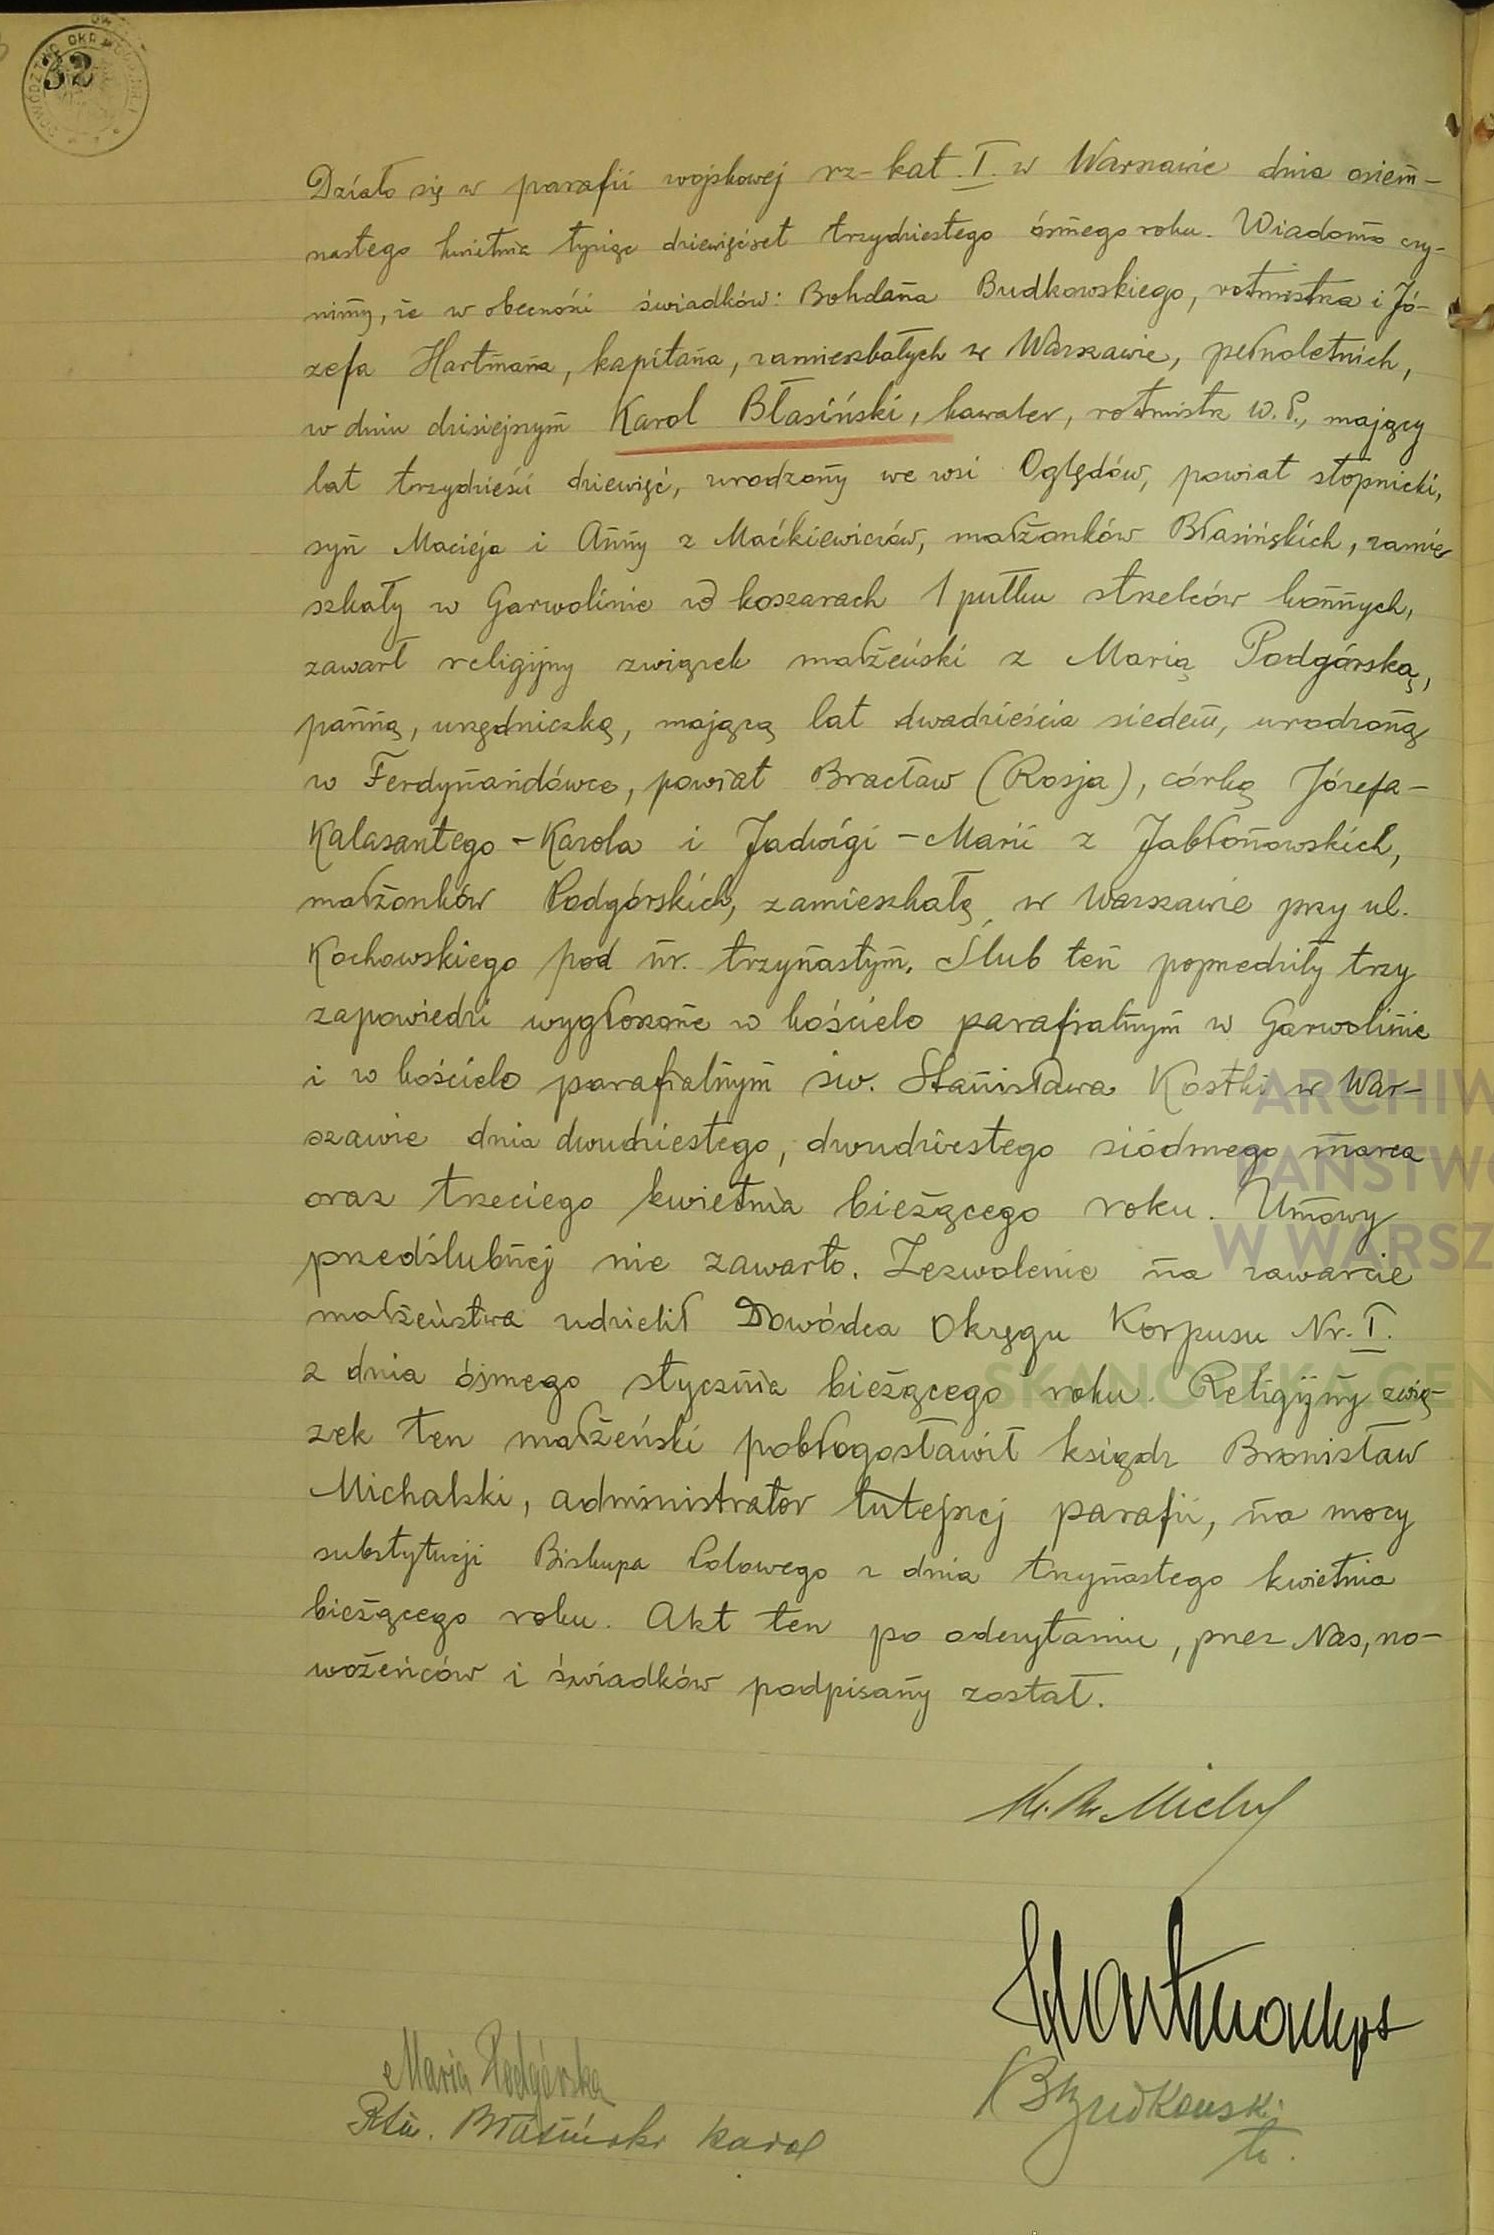 32
Działo się w parafii wojskowej rz-kat. I. w Warszawie dnia osiem-
nastego kwietnia tysiąc dziewięćset trzydziestego ósmego roku. Wiadomo czy-
nimy, że w obecności świadków: Bohdana Budkowskiego, rotmistrza i Jó-
zefa Hartmana, kapitana, zamieszkałych w Warszawie, pełnoletnich,
w dniu dzisiejszym Karol Błasiński, kawaler, rotmistrz W.P., mający
lat trzydzieści dziewięć, urodzony we wsi Oględów, powiat stopnicki,
syn Macieja i Anny z Maćkiewiczów, małżonków Błasińskich, zamie
szkały w Garwolinie w koszarach 1 pułku strzelców konnych,
zawarł religijny związek małżeński z Marią Podgórską,
panną, urzędniczką, mającą lat dwadzieścia siedem, urodzoną
w Ferdynandówce, powiat Bracław (Rosja), córką Józefa-
Kalasantego-Karola i Jadwigi-Marii z Jabłonowskich,
małżonków Podgórskich, zamieszkałą w Warszawie przy ul.
Kochowskiego pod nr. trzynastym. Ślub ten poprzedziły trzy
zapowiedzi wygłoszone w kościele parafialnym w Garwolinie
i w kościele parafialnym św. Stanisława Kostki w War-
szawie dnia dwudziestego, dwudziestego siódmego marca
oraz trzeciego kwietnia bieżącego roku. Umowy
przedślubnej nie zawarto. Zezwolenie na zawarcie
małżeństwa udzielił Dowódca Okręgu Korpusu Nr. I.
z dnia ósmego stycznia bieżącego roku. Religijny zwią-
zek ten małżeński pobłogosławił ksiądz Bronisław
Michalski, administrator tutejszej parafii, na mocy
substytucji Biskupa Polowego z dnia trzynastego kwietnia
bieżącego roku. Akt ten po odczytaniu, przez Nas, no-
wożeńców i świadków podpisany został.
Hartman kpt
Maria Podgórska
Budkowski
Rtm. Błasiński Karol
ARCHIW
PAŃSTWO
W WARSZ
SKANOTEKA GEN